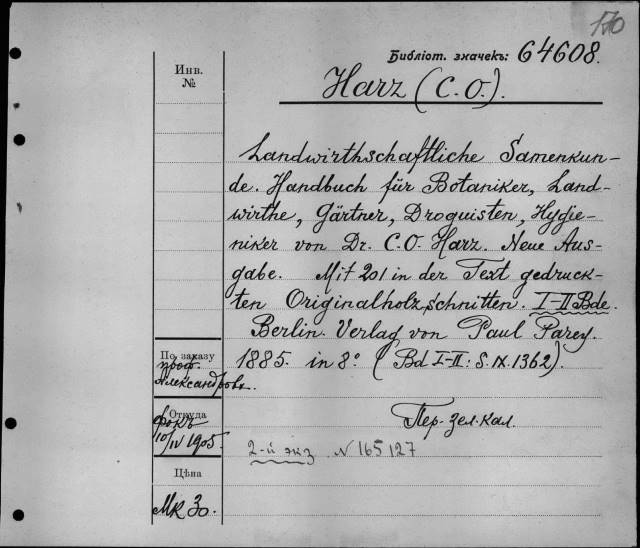 170
Библіот. значекъ: 64608.
Инв.
№
Harz (C. O.).
Landwirthschaftliche Samenkun-
de. Handbuch für Botaniker, Land-
wirthe, Gärtner, Droguisten, Hygie-
niker von Dr. C. O. Harz. Neue Aus-
gabe. Mit 201 in der Text gedruck-
ten Originalholzschnitten. I-II Bde.
Berlin. Verlag von Paul Parey.
1885. in 8° (Bd I-II: S. IX. 1362).
По заказу
проф.
Александрова.
Откуда
Фокъ
10/IV 1905.
Пер. зел. кал.
2-й экз. N 165127
Цѣна
Мк 30.